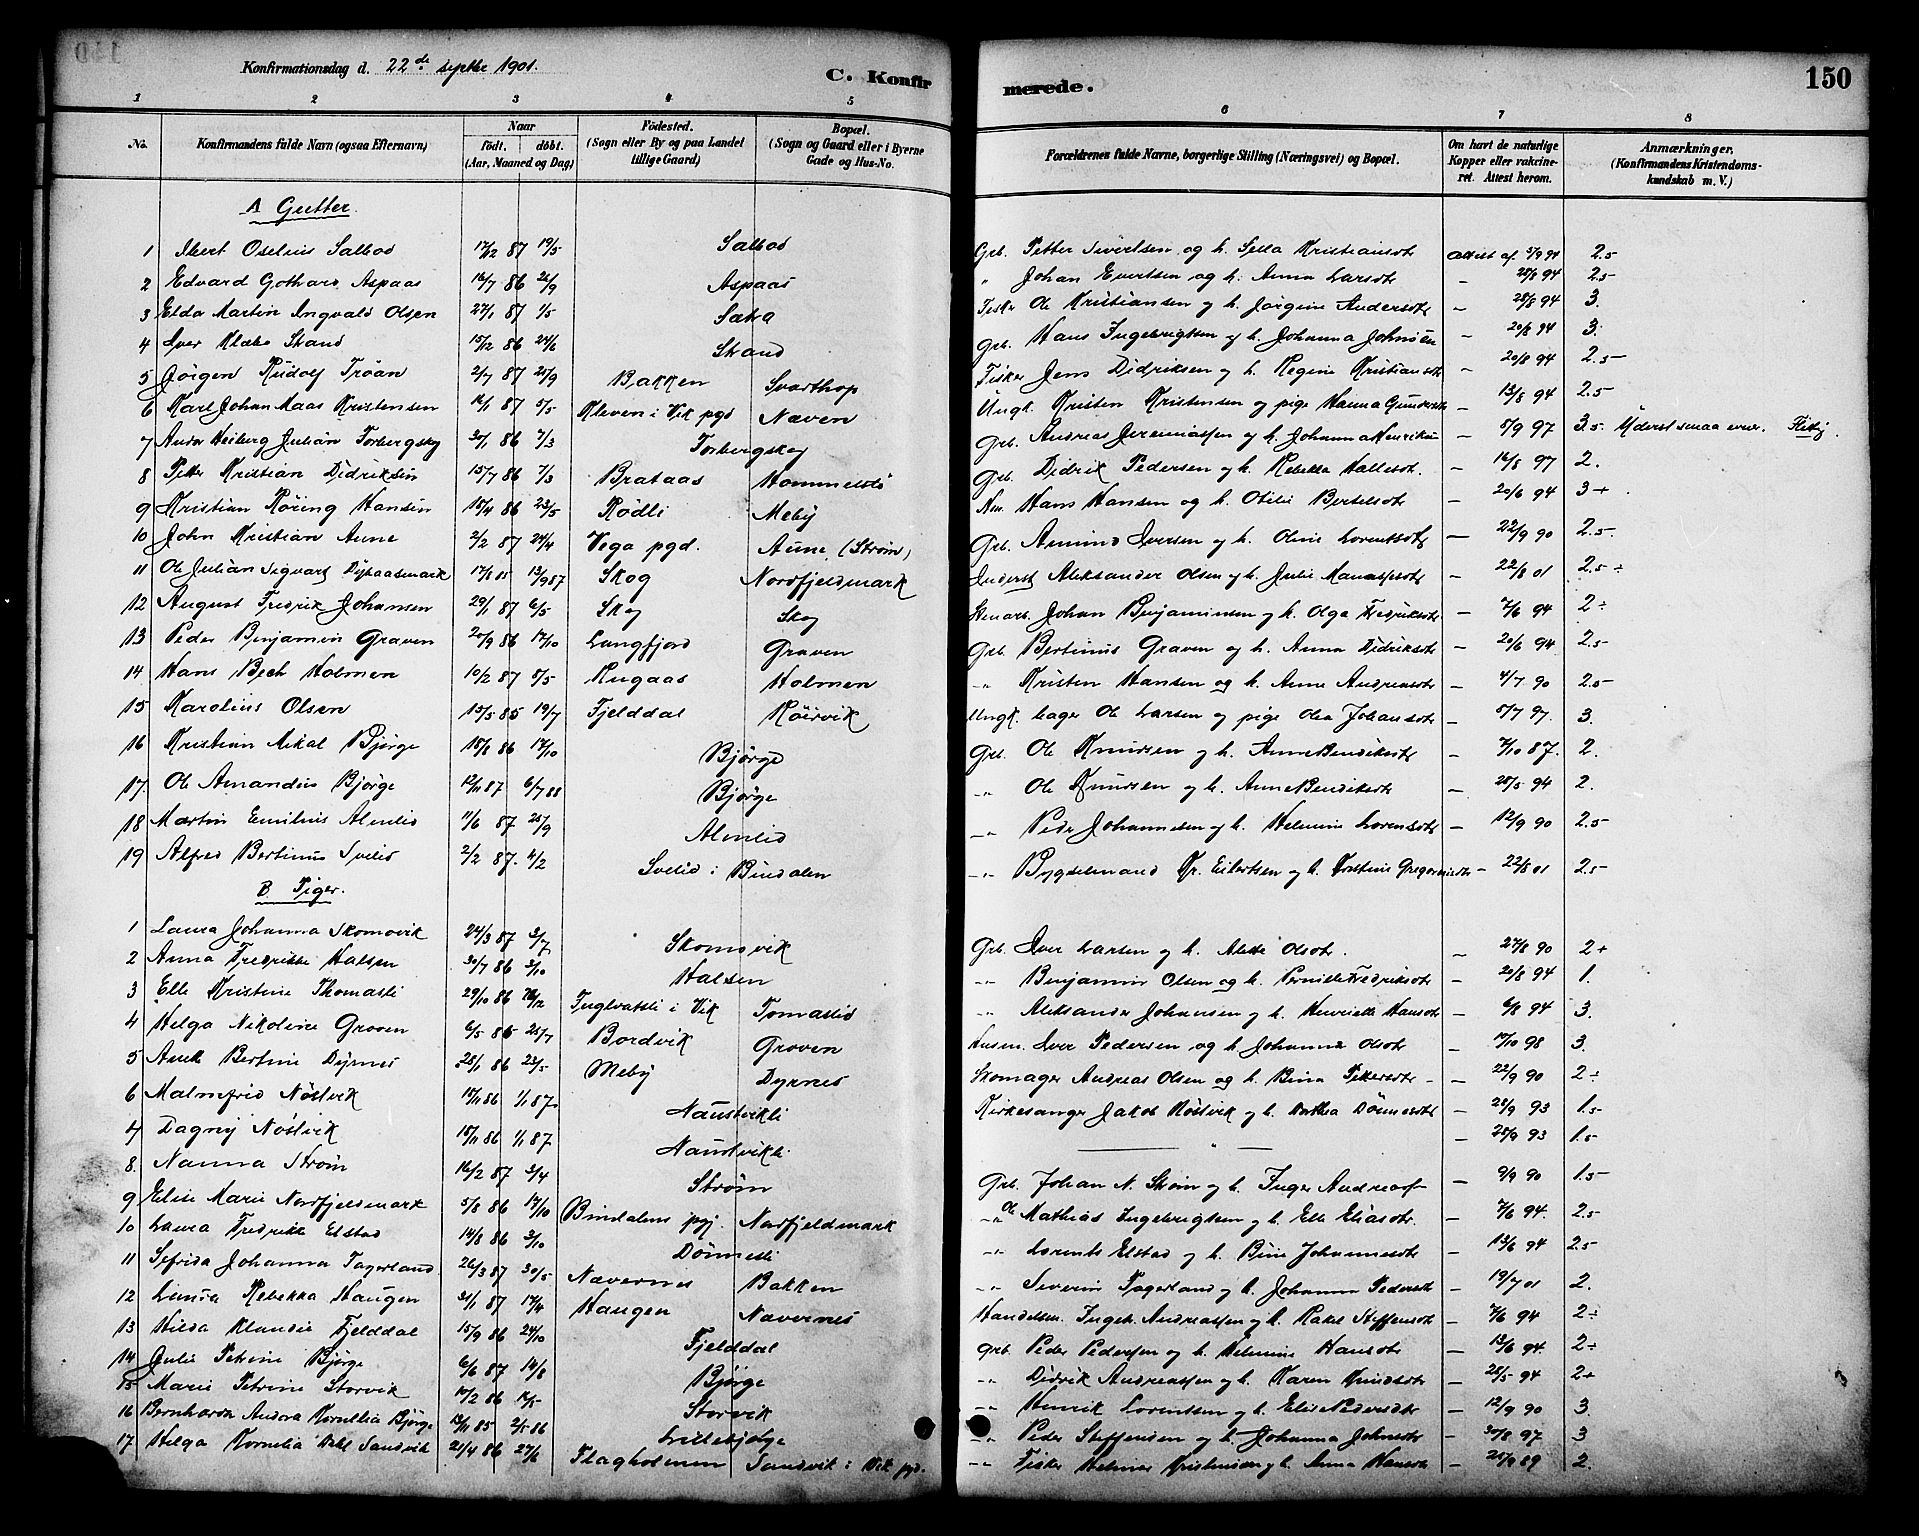 Konfirmationsdag d. 22de septbr 1901.
C. Konfirmerede.
150
1 2 3 4 5 6 7 8
No. Konfirmandens fulde Navn (ogsaa Efternavn) Naar født. døbt. (Aar, Maaned og Dag) Fødested. (Sogn eller By og paa Landet tillige Gaard) Bopæl. (Sogn og Gaard eller i Byerne Gade og Hus-No. Forældrenes fulde Navne, borgerlige Stilling (Næringsvei) og Bopæl. Om havt de naturlige Kopper eller vakcineret. Attest herom. Anmærkninger. (Konfirmandens Kristendomskundskab m. V.)
A Gutter.
1 Oselius Salbod 17/2 87 19/5 Salbod Grb. Petter Sivertsen og h. Kristiansdt attest af 5/9 91 2.5
2 Edvard Gothard Aspaas 16/7 86 26/9 Aspaas " Johan Evertsen og h. Anna Larsdt - 28/8 94 2.5
3 Martin Ingvald Olsen 27/1 87 1/5 Fisker Ole Kristiansen og h. Jørgine Andersdt - 28/8 94 3.
4 Iver Klæbo Strand 15/12 86 24/6 Strand Grb. Hans Ingebrigtsen og h. Johanna Johnsen - 20/8 94 3.
5 Jørgen Rudolf Trøan 2/7 87 25/9 Bakken Svarthop Fisker Jens Didriksen og h. Regine Kristiansdt - 20/8 94 2.5
6 Karl Johan Maas Kristensen 16/1 87 5/5 Kleven i Vik pgd Næven Ungk. Kristen Kristensen og pige Hanna Gundersdt - 13/8 94 2.5
7 Heiberg Julian Torbergskog 30/1 86 7/3 Torbergskog Grb. Andreas Jeremiassen og h. Johanna - 5/9 97 3.5 Yderst smaa evner. Flittig.
8 Petter Kristian Didriksen 15/7 86 7/3 Brataas Hommelstø Grb. Didrik Pedersen og h. Rebekka - 16/8 97 2.
9 Kristian Røring Hansen 15/4 86 23/5 Rødli Meby Hans Hansen og h. Otilie Bertelsdt - 20/6 94 3+
10 John Kristian Aune 2/2 87 24/4 Vega pgd. Aune (Strøm) Grb. Amund Iversen og h. Oline Lorentsdt - 22/9 90 2.5
11 Ole Julian Sigvart 17/8 85 13/9 87 Skog Nordfjeldmark Inderst Aleksander Olsen og h. Julie Manassesdt - 22/8 01 2.5÷
12 August Fredrik Johansen 29/1 87 6/5 Skog Skog Johan Benjaminsen og h. Olga Fredriksdt - 7/6 94 2÷
13 Peder Benjamin Graven 20/9 86 17/10 Langfjord Graven Grb. Bertinus Graven og h. Anna Didriksdt - 20/6 94 2.5
14 Hans Bech Holmen 10/2 87 5/5 Rugaas Holmen -"- Kristen Hansen og h. Anne Andreasdt - 4/7 90 2.5
15 Karolius Olsen 15/5 85 19/7 Fjelddal Røirvik Ungk. Ole Larsen og pige Olea Johansdt - 5/7 97. 3.
16 Kristian Mikal Bjørge 15/8 86 17/10 Bjørge Grb. Ole Knudsen og h. Anne Bendiksdt - 7/10 87. 2.
17. Ole Amandus Bjørge 12/11 87 6/7 88 Bjørge -"- Ole Knudsen og h. Anne Bendiksdt - 25/5 94 2.
18 Martin Emilius Almlid 11/6 87 25/9 Almlid -"- Peder Johannesen og h. Helmine Lorensdt - 12/9 90 2.5
19 Alfred Bertinus Svelid 2/2 87. 4/2 Svelid i Bindalen -"- Bygselmand Kr. Eilertsen og h. - 22/8 01 2.5
B Piger.
1 Laura Johanna Skomovik 24/3 87 3/7 Skomovik Grb. Iver Larsen og h. Alette Olsdt. - 27/8 90 2+
2 Anna Fredrikke Halsen 30/7 86 3/10 Halsen -"- Benjamin Olsen og h. Pernille Fredriksdt - 20/8 94 1.
3 Elle Kristine Thomasli 29/10 86 26/12 i Vik Tomaslid -"- Aleksander Johansen og h. Henriette Hansdt - 6/8 94 3.
4 Helga Nikoline Groven 6/5 86 25/7 Bordvik Groven Husm. Iver Pedersen og h. Johanna Olsdt - 17/10 98 3.
5 Bertine Dyrnes 28/1 86 23/5 Meby Dyrnes Skomager Andreas Olsen og h. Bina Pettersdt - 22/9 90 2÷
6 Malmfrid Nøstvik 15/11 86 1/1 87. Naustvikli Kirkesanger Jakob Nøstvik og h. Dorthea Dønnesdt - 25/9 93 1.5
7 Dagny Nøstvik 15/11 86 1/1 87 Naustvikli - " - - 25/9 93 1.5
8. Nanna Strøm 16/2 87 3/4 Strøm Grb. Johan N. Strøm og h. Inger - 9/9 90 1.5
9 Elise Marie Nordfjeldmark 5/8 86 17/10 Bindalens pgj. Nordfjeldmark -"- Mathias Ingebrigtsen og h. Elle Eliasdt. - 7/6 94. 2.5
10 Laura Fredrikke Elstad 14/8 86 3/10 Dønnesli -"- Lorents Elstad og h. Bine Johannesdt - 13/6 94 2.5
11 Sefrida Johanna Fagerland 26/3 87 30/5 Nævernes Bakken -"- Severin Fagerland og h. Johanna Pedersdt - 19/7 01 2.
12 Rebekka Haugen 31/1 87 17/4 Haugen Nævernes Handelsm. Ingeb. Andreassen og h. Rakel Steffensdt - 7/6 94 2÷
13 Hilda Klaudie Fjelddal 15/9 86 24/10 Fjelddal Grb Peder Pedersen og h. Helmine Hansdt - 13/6 94. 2÷
14 Julie Petrine Bjørge 6/6 87 14/8 Bjørge -"- Didrik Andreassen og h. Karen Knudsdt - 25/5 94 2+
15 Marie Petrine Storvik 17/2 86 Storvik -"- Henrik Lorentsen og h. Elise Pedersdt - 12/9 90 3.
16 Bernharda Andora Kornellia Bjørge 13/11 85 2/5 86 Lillebjørge -"- Peder Steffensen og h. Johanna Johnsdt - 30/8 97 3
17 Helga Kornelia Dahl Sandvik 21/4 86 27/6 Flagholmen Sandvik i Vik pgd. -"- Fisker Helmer Kristensen og h. Anna Hansdt - 25/9 89 2.